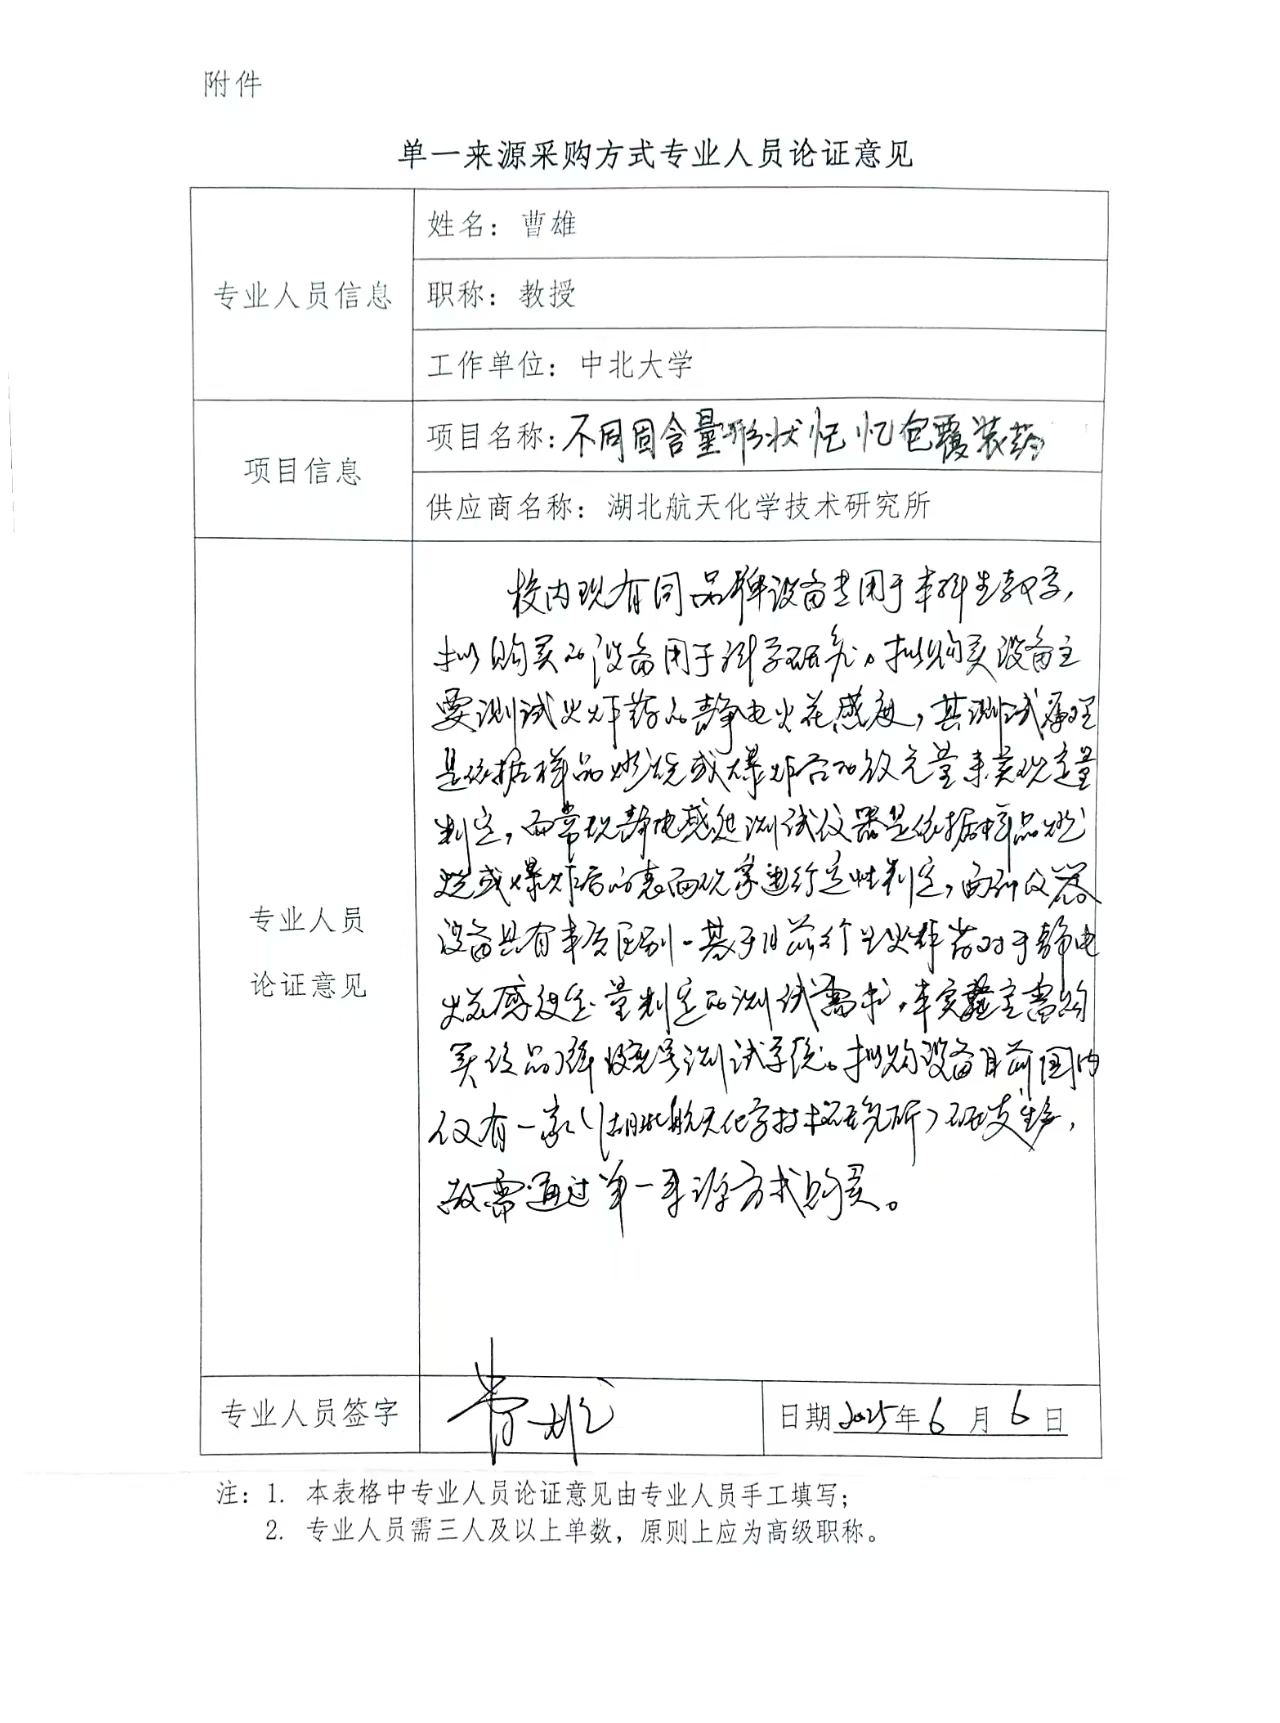 附件
单一来源采购方式专业人员论证意见
专业人员信息
姓名：曹雄
职称：教授
工作单位：中北大学
项目信息
项目名称：不同固含量形状记忆包覆装药
供应商名称：湖北航天化学技术研究所
专业人员
论证意见
校内现有同品牌设备专用于本科生教学，
拟购买的设备用于科学研究。拟购买设备主
要测试火炸药的静电火花感度，其测试原理
是依据样品燃烧或爆炸后的效元量来实现定量
判定，而常规静电感度测试仪器是依据样品燃
烧或爆炸后的表面现象进行定性判定，两种仪器
设备具有本质区别。基于目前行业火炸药对于静电
火花感度定量判定的测试需求，本实验室需购
买该品牌 测试系统。拟购设备目前国内
仅有一家（湖北航天化学技术研究所）研发生产，
故需通过单一来源方式购买。
专业人员签字
曹雄
日期2025年6月6日
注：1. 本表格中专业人员论证意见由专业人员手工填写；
2. 专业人员需三人及以上单数，原则上应为高级职称。